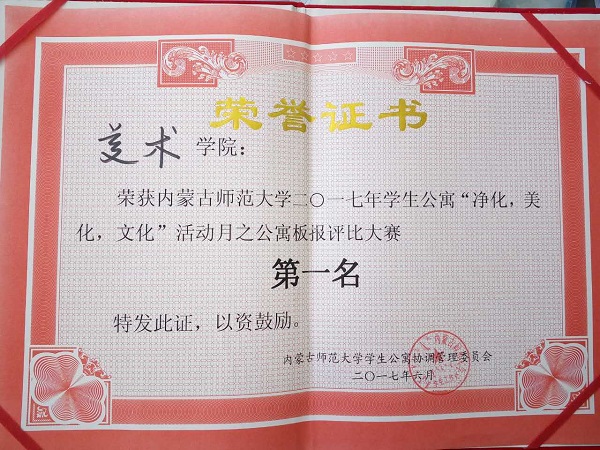 荣誉证书
美术 学院：
荣获内蒙古师范大学二〇一七年学生公寓“净化，美
化，文化”活动月之公寓板报评比大赛
第一名
特发此证，以资鼓励。
内蒙古师范大学学生公寓协调管理委员会
二〇一七年六月